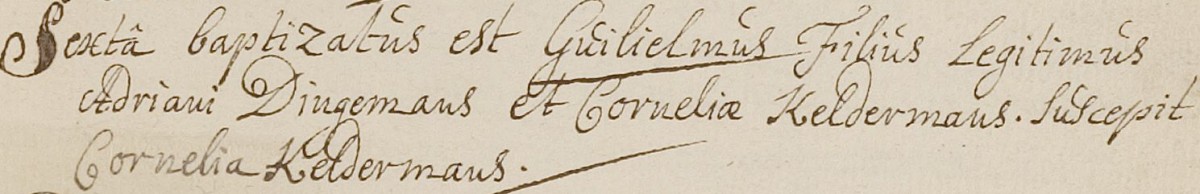 Sextâ baptizatus est Guilielmus Filius Legitimus
Adriani Dingemans et Corneliæ Keldermans. suscepit
Cornelia Keldermans.